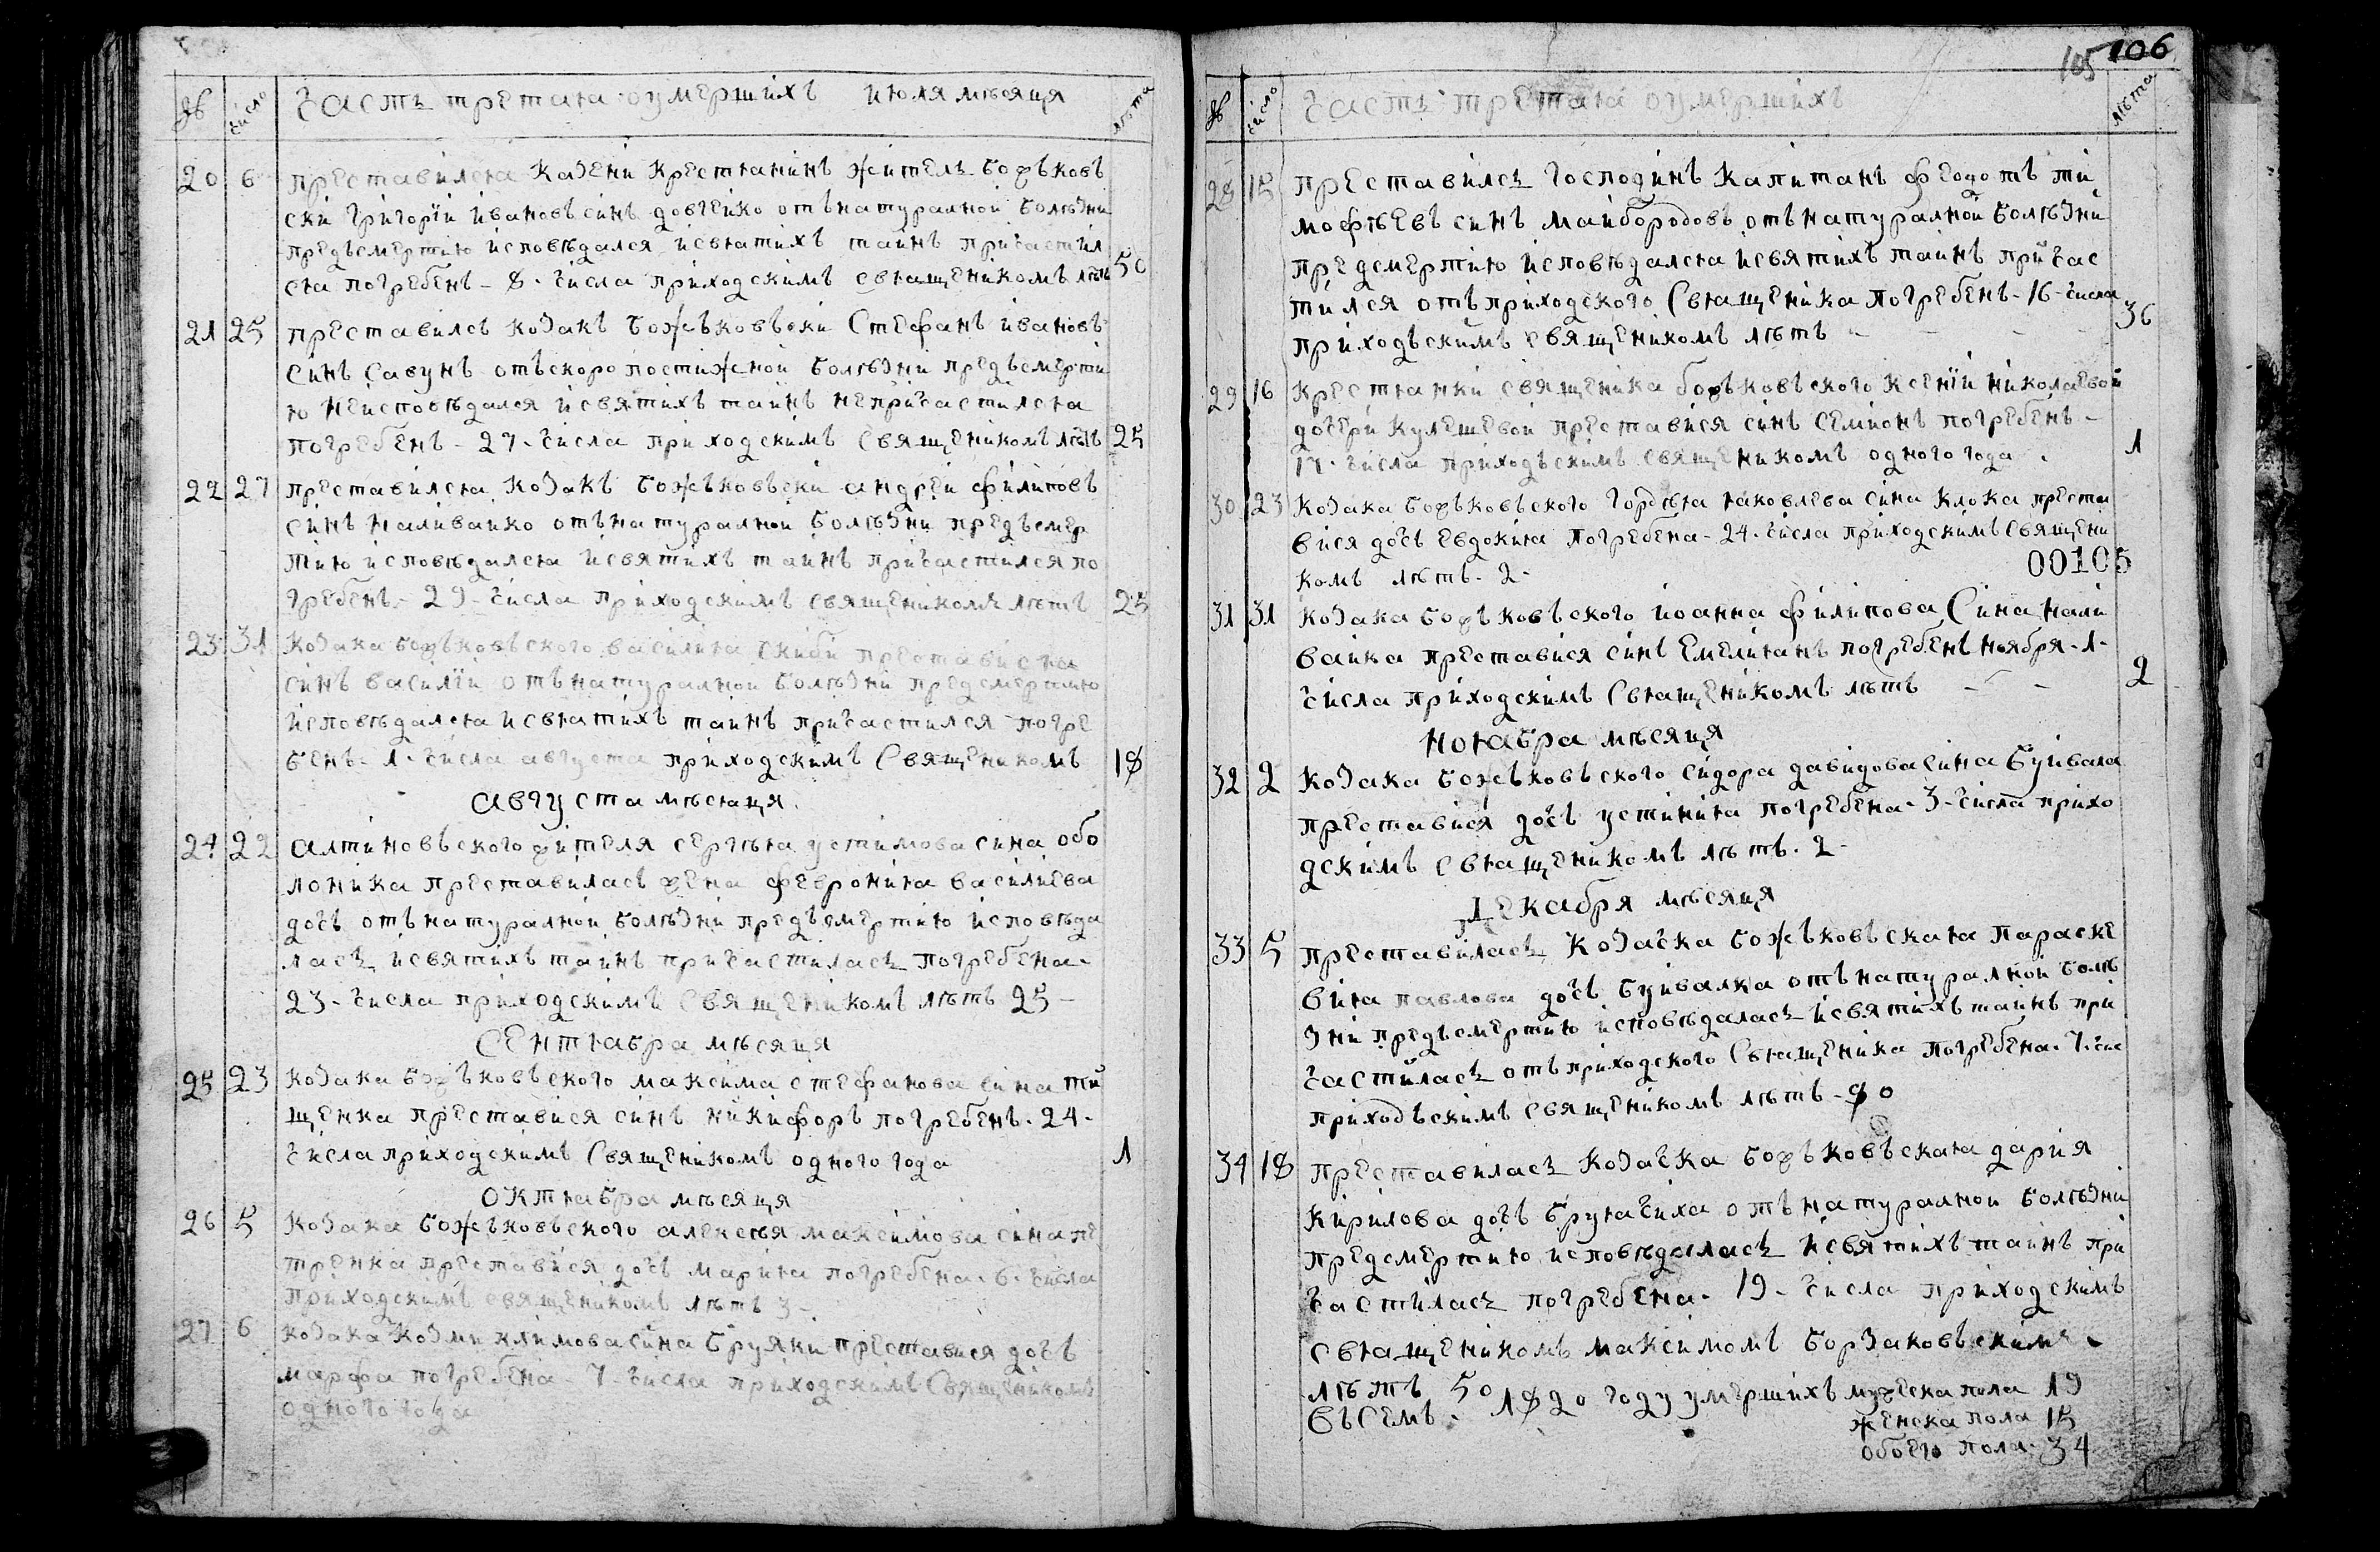 № число Часть третая оумершихъ июля мѣсяця лѣта
20 6 преставился казени крестянинъ житель Божъковъ
ски григорїи ивановъ синъ довгенко отънатуралной болѣзни
предъсмертию исповѣдался исвятихъ таинъ причастил
ся погребенъ - 8 - числа приходскимъ священикомъ лѣтъ 50
21 25 преставилсь козакъ Божъковъски Стефанъ ивановъ
синъ Савунъ отъскоропостижной болѣзни предъсмерти
ю неисповѣдался исвятихъ таинъ непричастился
погребенъ - 27 - числа приходскимъ Священикомъ лѣтъ 25
22 27 преставился козакъ Божъковъски андреи филиповъ
синъ наливаико отънатуралной болѣзни предъсмер
тию исповѣдался исвятихъ таинъ причастился по
гребенъ - 29 - числа приходскимъ священикомъ лѣтъ 25
23 31 козака божъковъского василия скиби преставися
синъ василїи отънатуралной болѣзни предсмертию
исповѣдался исвятихъ таинъ причастился погре
бенъ - 1 - числа августа приходскимъ Священикомъ 18
августа мѣсяця
24 22 алтиновъского жителя сергѣя устимова сина обо
лоника преставилась жена феврония василиева
дочъ отънатуралной болѣзни предъсмертию исповѣда
лась исвятихъ таинъ причастилась погребена -
23 - числа приходскимъ Священикомъ лѣтъ 25 -
Сентября мѣсяця
25 23 козака божъковъского максима стефанова сина ти
щенка преставися синъ никифоръ погребенъ - 24 -
числа приходскимъ Священикомъ одного года 1
октября мѣсяця
26 5 козака божъковъского алексѣя максимова сина пе
тренка преставися дочъ мария погребена - 6 - числа
приходскимъ священикомъ лѣтъ 3 -
27 6 козака козми климова сина Бруяки преставися дочъ
марфа погребена - 7 - числа приходскимъ Священикомъ
одного года
105 106
№ число Часть третая оумершихъ лѣта
28 15 преставилсь господинъ капитанъ феодотъ ти
мофѣевъ синъ маибородовъ отънатуралной болѣзни
предсмертию исповѣдался исвятихъ таинъ причас
тился отъприходского Священика погребенъ - 16 - числа
приходъскимъ священикомъ лѣтъ - 36
29 16 крестянки священика божъковъского ксенїи николаевой
дочери кулешевои преставися синъ семионъ погребенъ -
17 - числа приходъскимъ священикомъ одного года . 1
30 23 козака божъковъского гордѣя яковлева сина клока преста
вися дочъ евдокия погребена - 24 - числа приходскимъ священи
комъ лѣтъ - 2 -
00105
31 31 козака божъковъского иоанна филипова Сина нали
ваика преставися синъ Емелиянъ погребенъ ноября - 1 -
числа приходскимъ Священикомъ лѣтъ - - 2
ноября мѣсяця
32 2 козака божъковъского сидора давидова сина Буивала
преставися дочъ устиния погребена - 3 - числа прихо
дскимъ священикомъ лѣтъ - 2 -
Декабря мѣсяця
33 5 преставилась козачка божъковъская параске
вия павлова дочъ Буивалка отънатуралной болѣ
зни предъсмертию исповѣдалась исвятихъ таинъ при
частилась отъприходского Священика погребена - 7 - чис
приходъскимъ священикомъ лѣтъ - 80
34 18 преставилась козачка божъковъская дария
кирилова дочъ бруячиха отънатуралной болѣзни
предсмертию исповѣдалась исвятихъ таинъ при
частилась погребена - 19 - числа приходскимъ
священикомъ максимомъ Борзаковъскимъ -
лѣтъ 50
Въсемъ - 1820 году умершихъ мужеска пола 19
женска пола 15
обоего пола - 34